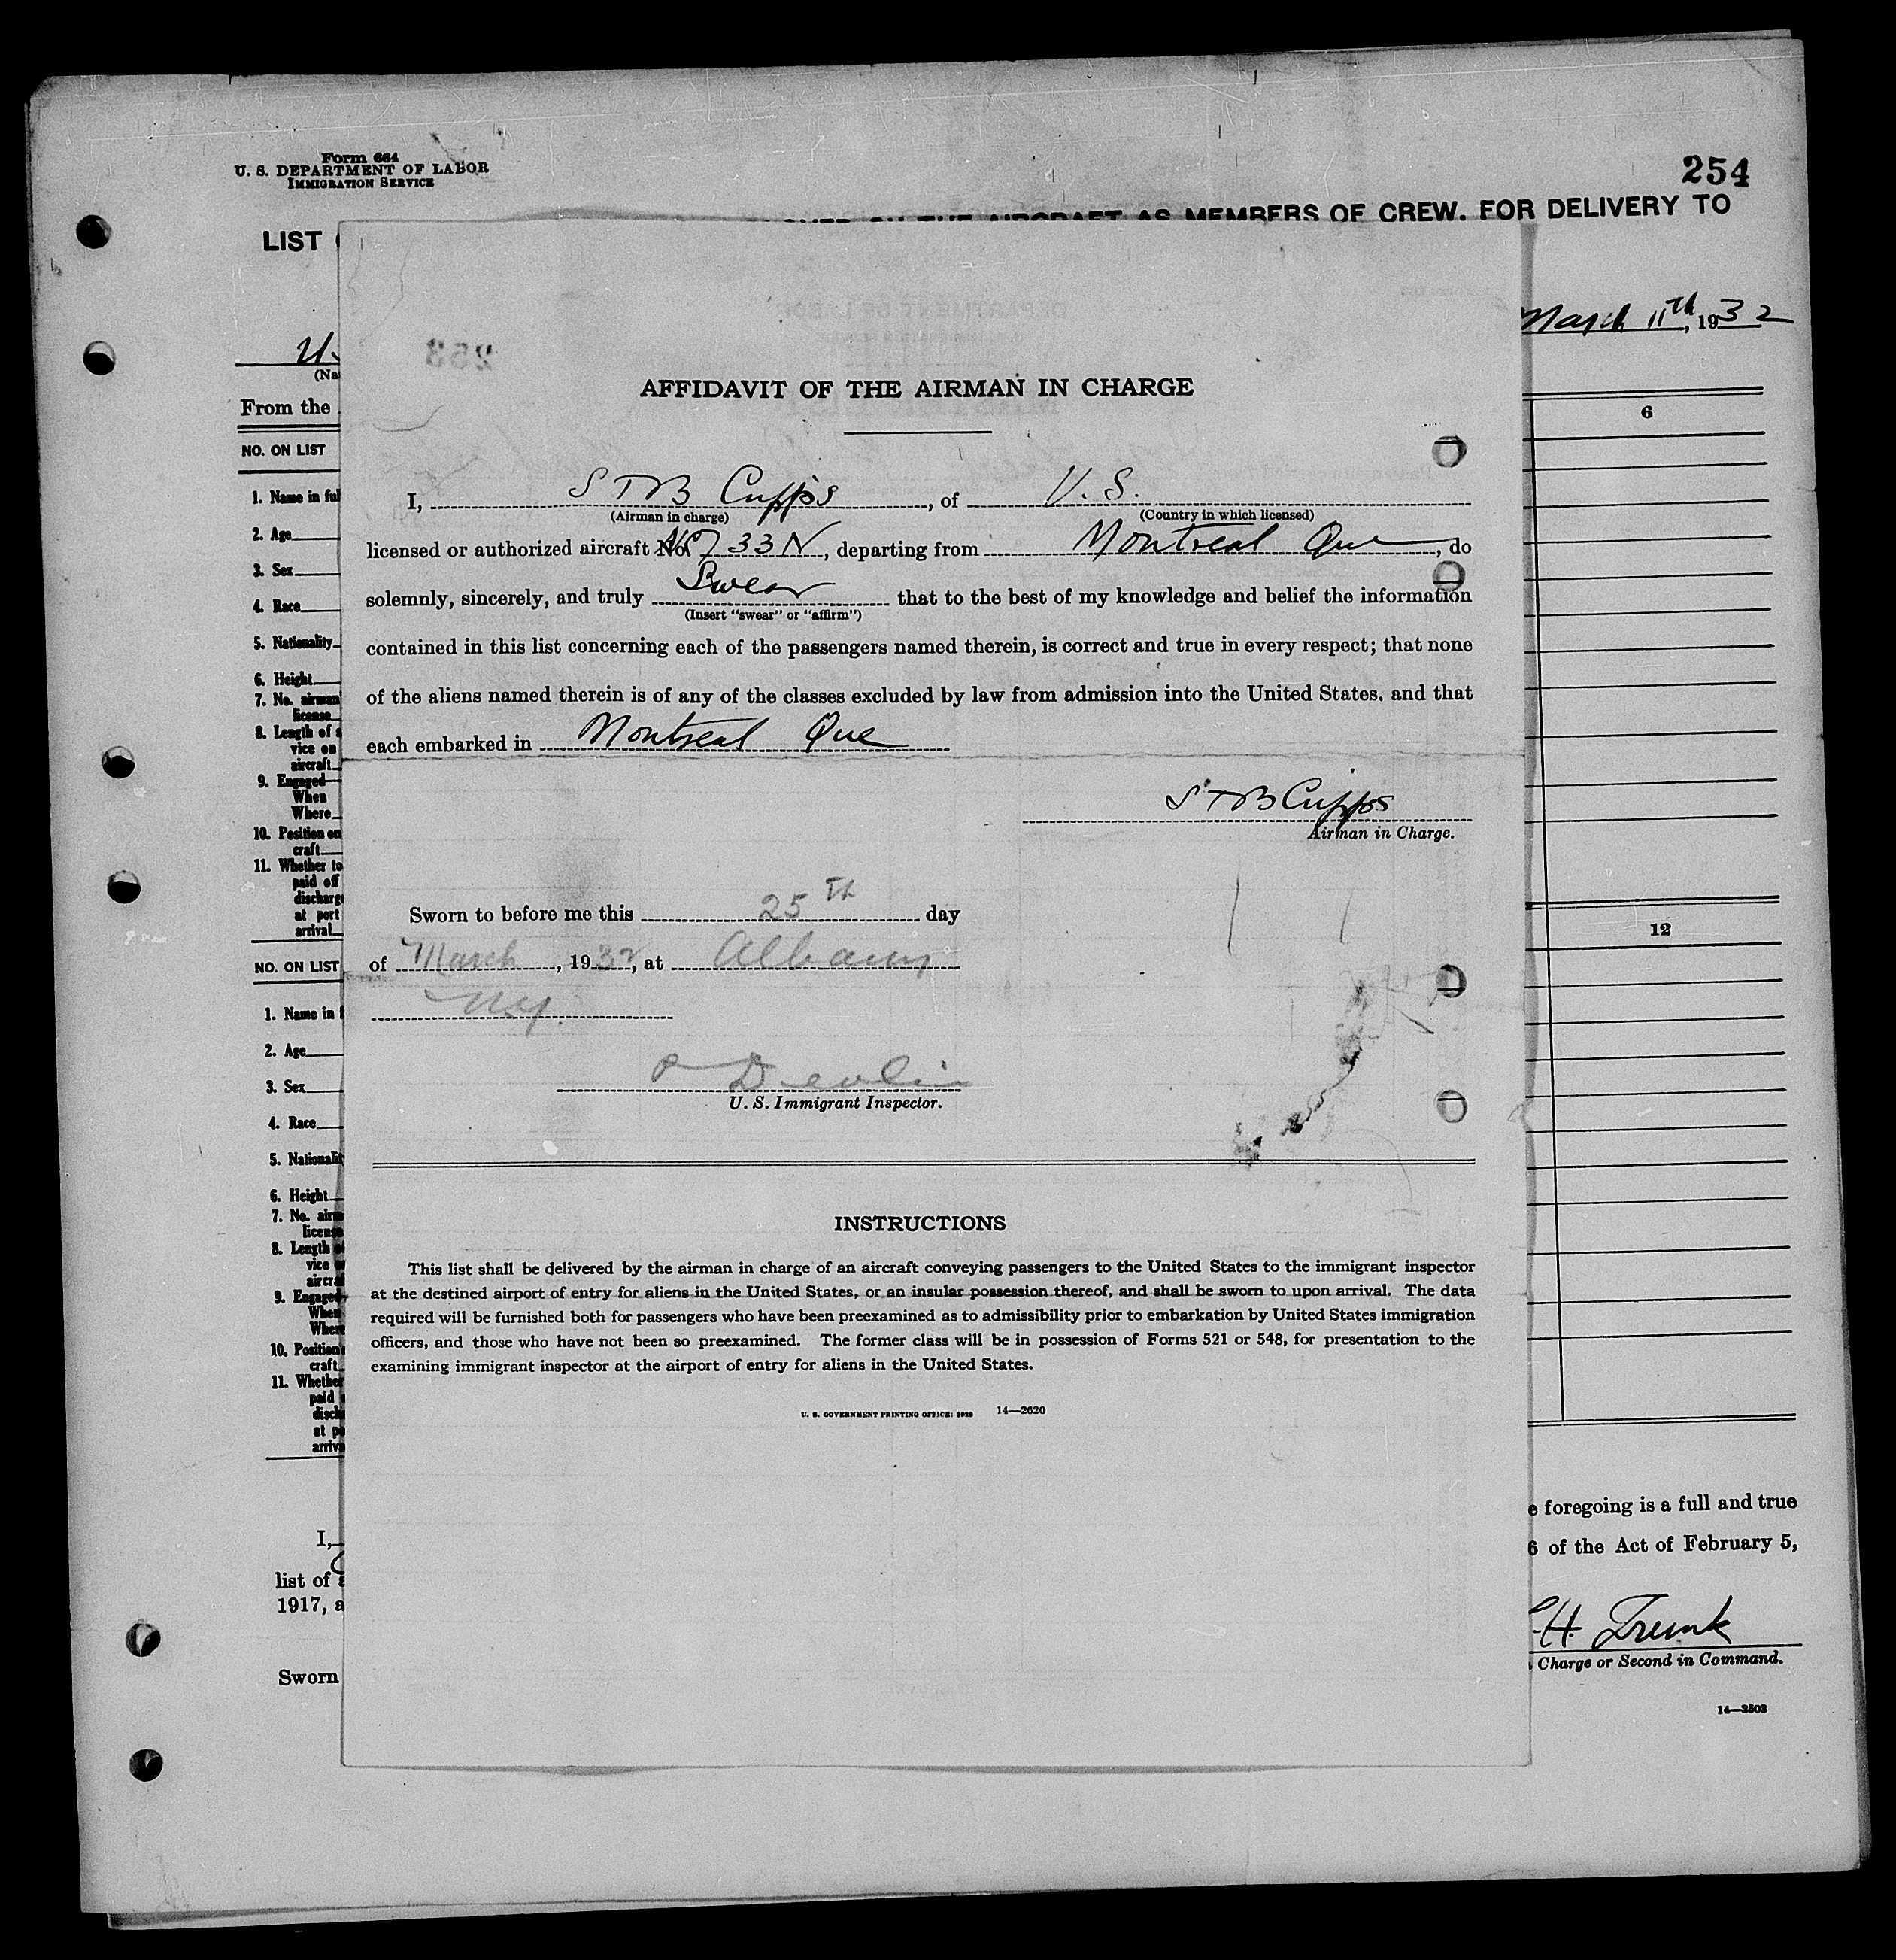 Form 664
U. S. DEPARTMENT OF LABOR
IMMIGRATION SERVICE
254
LIST
THE AIRCRAFT AS MEMBERS OF CREW. FOR DELIVERY TO
March 11th, 1932
From the
NO. ON LIST
1. Name in ful
2. Age
3. Sex
4. Race
5. Nationality
6. Height
7. No. airman
license
8. Length of s
vice on
aircraft
9. Engaged
When
Where
10. Position on
craft
11. Whether to
paid off
discharge
at port
arrival
NO. ON LIST
1. Name in f
2. Age
3. Sex
4. Race
5. Nationalit
6. Height
7. No. airm
license
8. Length of
vice
aircra
9. Engaged
When
Wher
10. Position
craft
11. Whether
paid
disch
at p
arriv
I,
list of
1917, a
Sworn
253
AFFIDAVIT OF THE AIRMAN IN CHARGE
I, S T B Cupps, of U. S.
(Airman in charge) (Country in which licensed)
licensed or authorized aircraft No. 33 N, departing from Montreal Que, do
solemnly, sincerely, and truly Swear that to the best of my knowledge and belief the information
(Insert "swear" or "affirm")
contained in this list concerning each of the passengers named therein, is correct and true in every respect; that none
of the aliens named therein is of any of the classes excluded by law from admission into the United States, and that
each embarked in Montreal Que
S T B Cupps
Airman in Charge.
Sworn to before me this 25th day
of March, 1932, at Albany
N.Y.
Devlin
U. S. Immigrant Inspector.
INSTRUCTIONS
This list shall be delivered by the airman in charge of an aircraft conveying passengers to the United States to the immigrant inspector
at the destined airport of entry for aliens in the United States, or an insular possession thereof, and shall be sworn to upon arrival. The data
required will be furnished both for passengers who have been preexamined as to admissibility prior to embarkation by United States immigration
officers, and those who have not been so preexamined. The former class will be in possession of Forms 521 or 548, for presentation to the
examining immigrant inspector at the airport of entry for aliens in the United States.
U. S. GOVERNMENT PRINTING OFFICE: 1929 14—2620
6
12
e foregoing is a full and true
6 of the Act of February 5,
H. Trunk
Charge or Second in Command.
14—3503